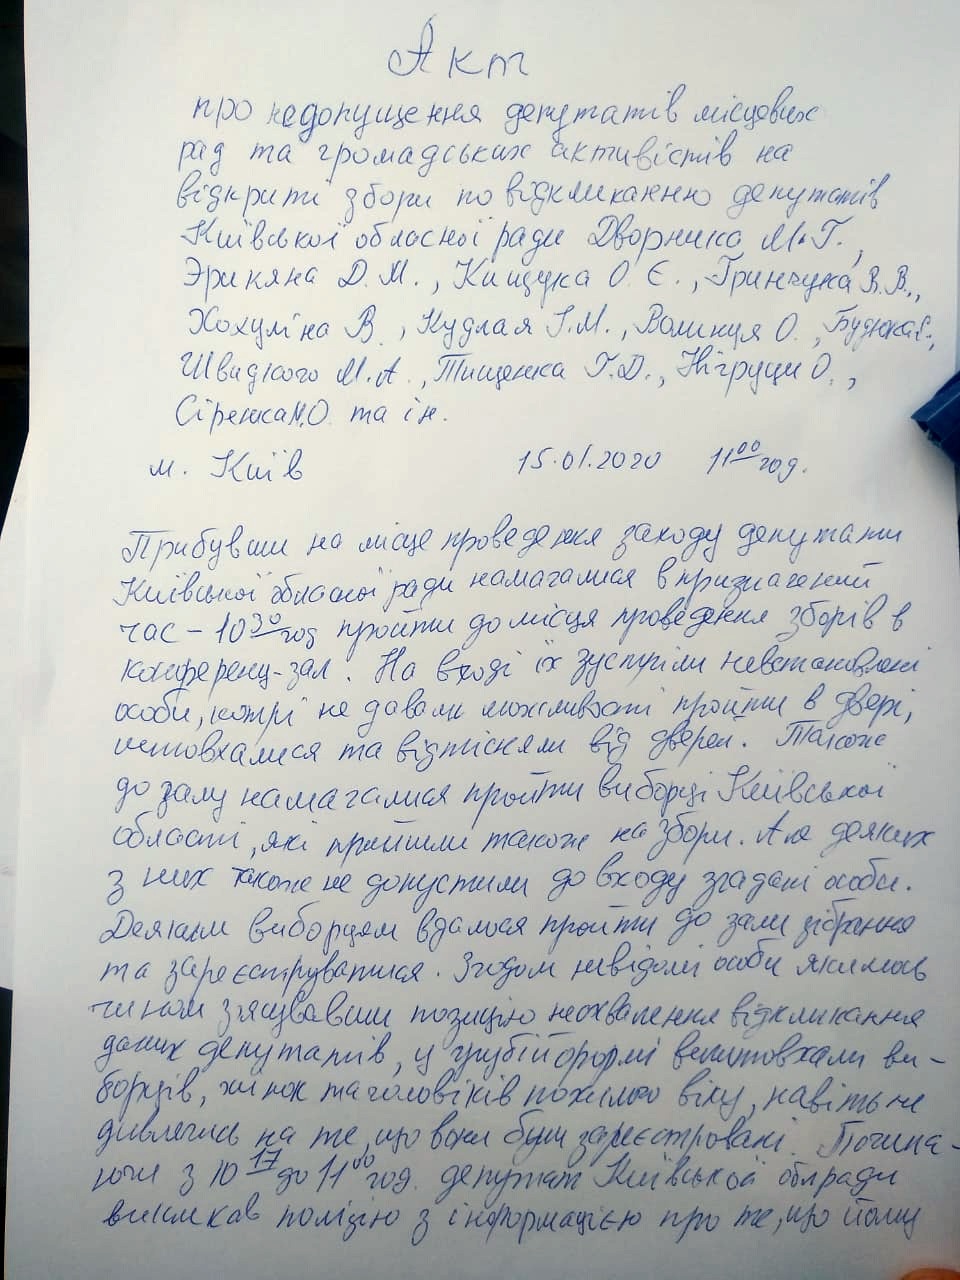 Акт
про недопущення депутатів місцевих
рад та громадських активістів на
відкриті збори по відкликанню депутатів
Київської обласної ради Дворника М.Г.,
Эрикяна Д.М., Кищука О.Є., Гринчука В.В.,
Хохуліна В., Кудлая І.М., Волинця О., Будюка Є.,
Швидкого М.А., Тищенка Г.Д., Нігруци О.,
Сіренка М.О. та ін.
м. Київ 15.01.2020 11⁰⁰ год.
Прибувши на місце проведення заходу депутати
Київської обласної ради намагалися в призначений
час – 10³⁰ год пройти до місця проведення зборів в
конференц-зал. На вході їх зустріли невстановлені
особи, котрі не давали можливості пройти в двері,
штовхалися та відтісняли від дверей. Також
до залу намагалися пройти виборці Київської
області, які прийшли також на збори. Але деяких
з них також не допустили до входу згадані особи.
Деяким виборцям вдалося пройти до зали зібрання
та зареєструватися. Згодом невідомі особи якимось
чином з'ясувавши позицію несхвалення відкликання
даних депутатів, у грубій формі виштовхали ви-
борців, жінок та чоловіків похилого віку, навіть не
дивлячись на те, що вони були зареєстровані. Почина-
ючи з 10¹⁷ до 11⁰⁰ год. депутат Київської облради
викликав поліцію з інформацією про те, що йому